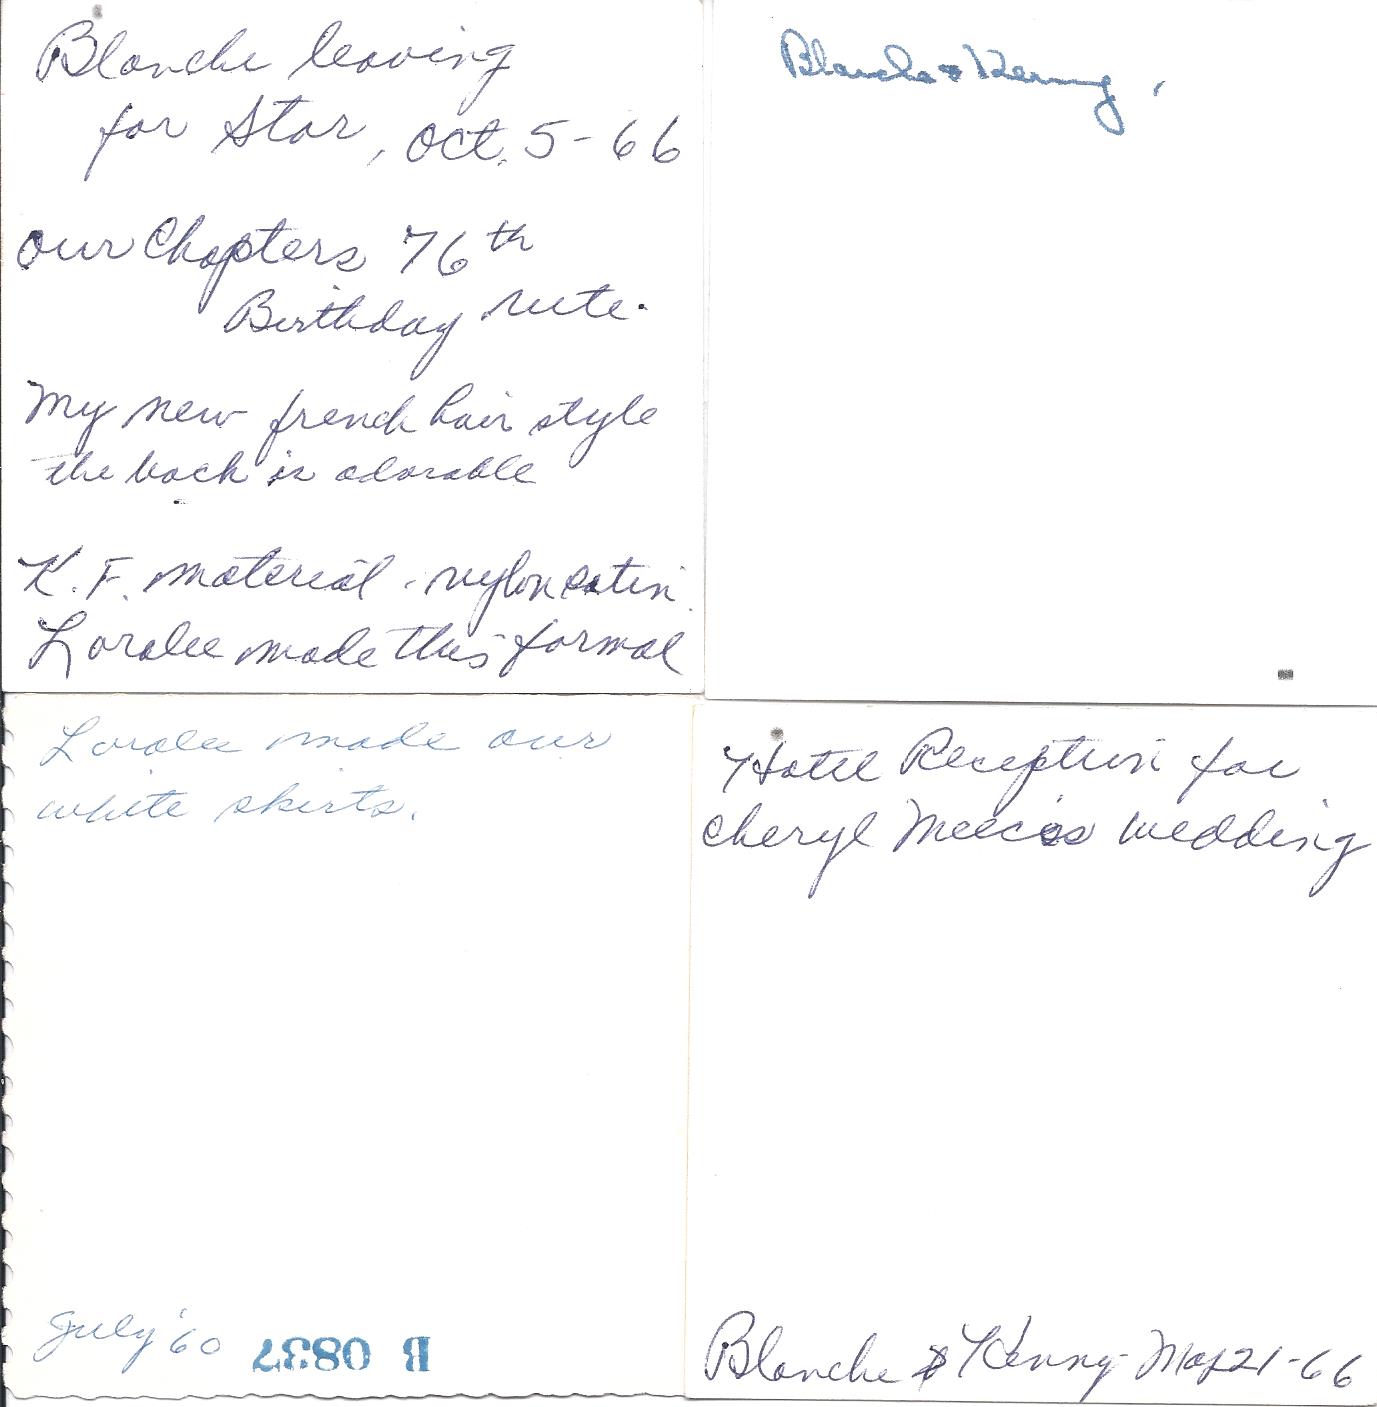 Blanche leaving
for Star, Oct. 5-66
Our Chapters 76th
Birthday nite.
My new french hair style
the back is adorable
K. F. material. nylon satin.
Loralee made this formal
Blanche & Kenny,
Loralee made our
white skirts.
July '60 B 0837
Hotel Reception for
Cheryl wedding
Blanche & Kenny- May 21-66